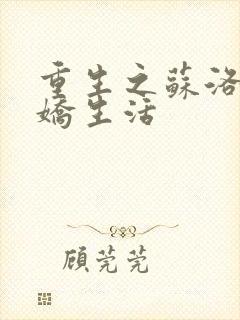 重生之蘇洛
嬌生活
顧莞莞